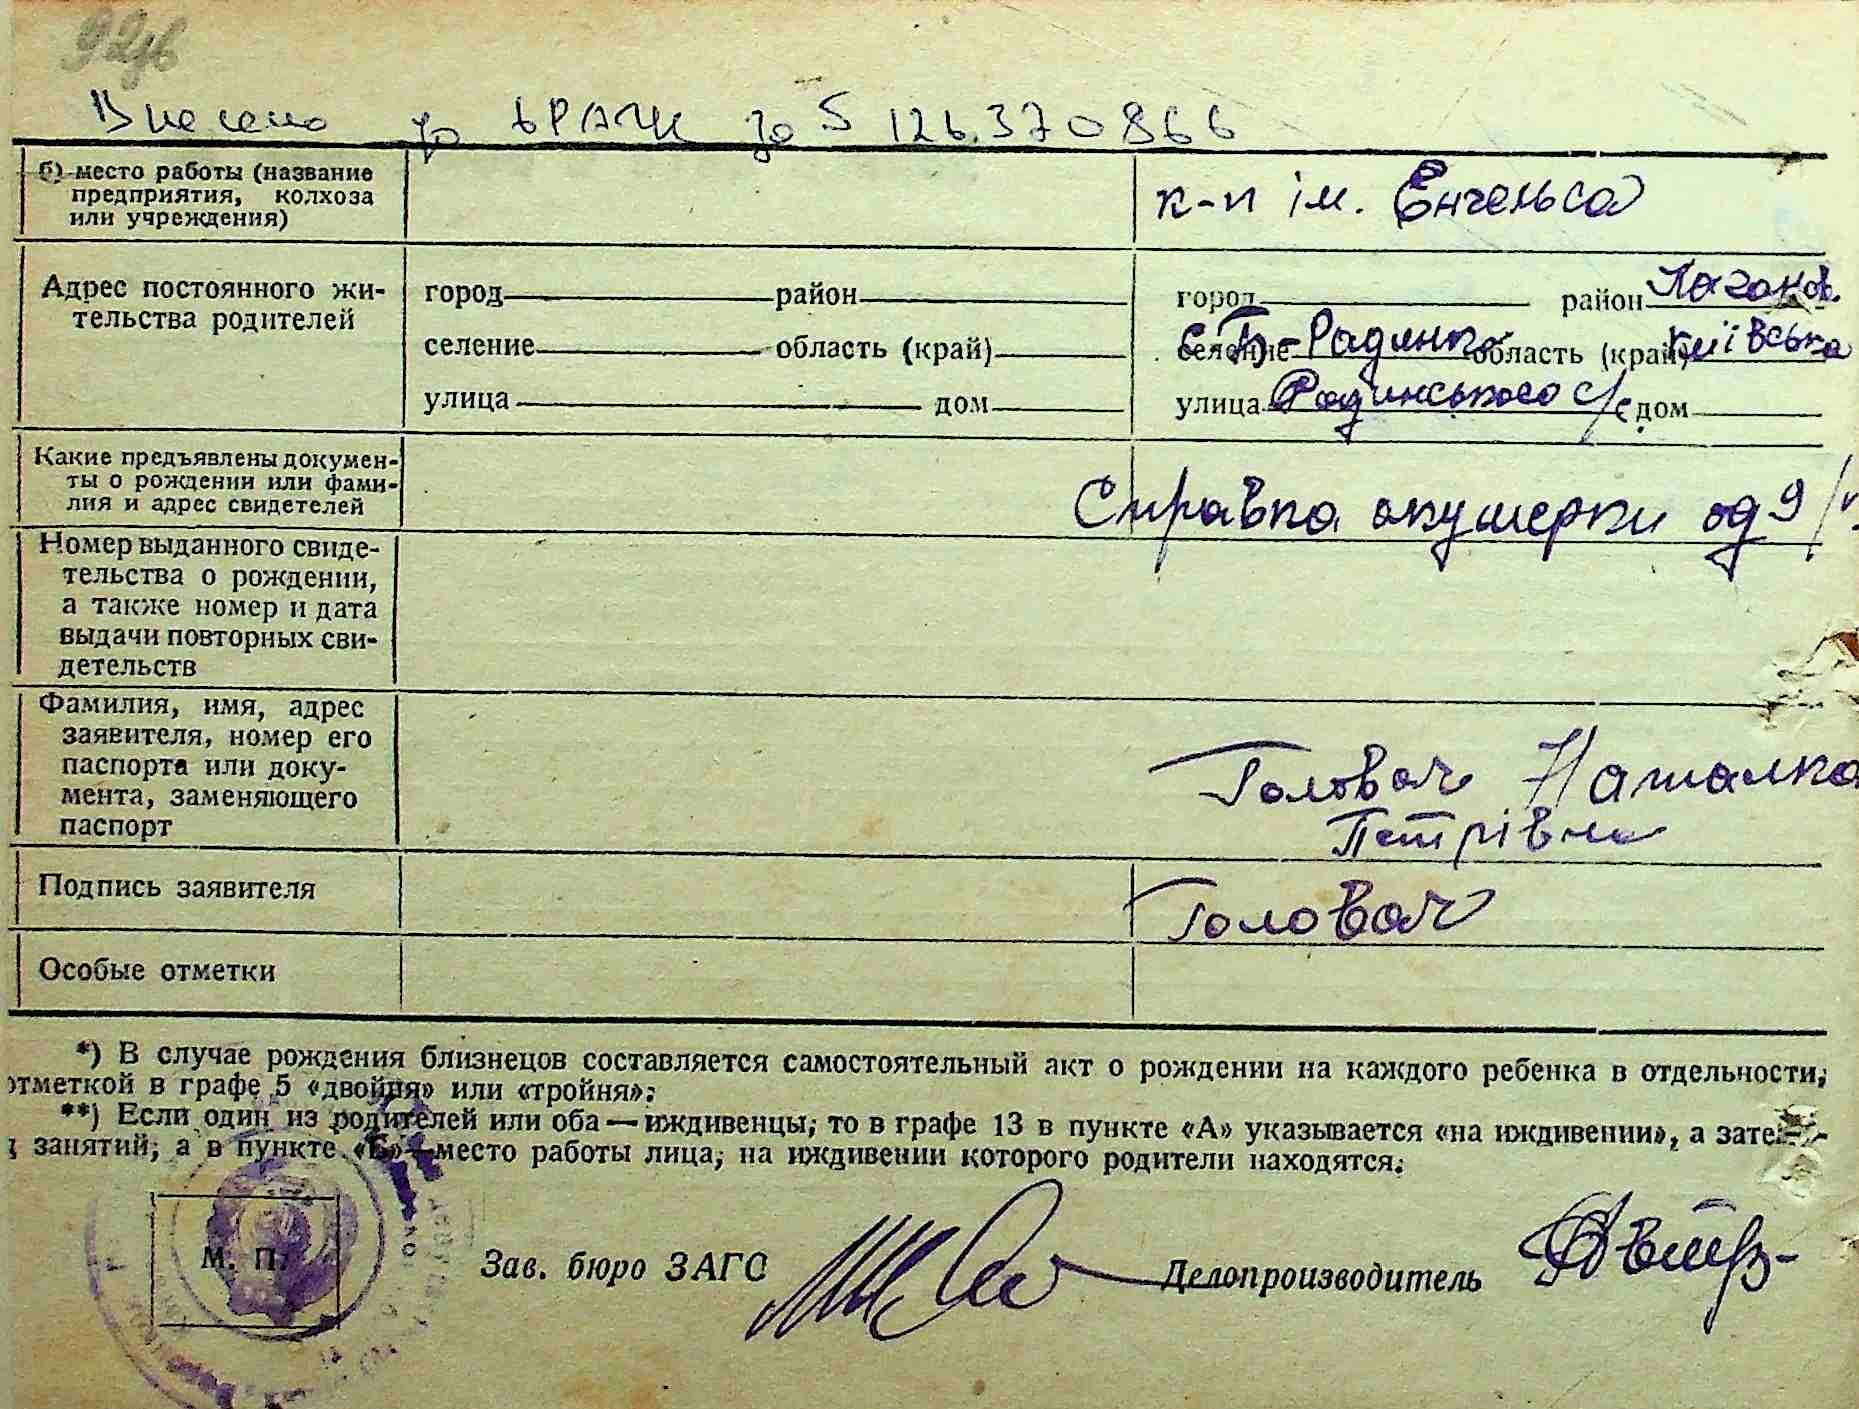 92зв
Внесено до ДРАЦС за № 126.370866
б) место работы (название
предприятия, колхоза
или учреждения)
к-п ім. Енгельса
Адрес постоянного жи-
тельства родителей
город район
селение область (край)
улица дом
город район Каганов.
селение с. Б-Радинка область (край) Київська
улица Радинського с/с дом
Какие предъявлены докумен-
ты о рождении или фами-
лия и адрес свидетелей
Справка акушерки од 9/
Номер выданного свиде-
тельства о рождении,
а также номер и дата
выдачи повторных сви-
детельств
Фамилия, имя, адрес
заявителя, номер его
паспорта или доку-
мента, заменяющего
паспорт
Головач Наталка
Петрівна
Подпись заявителя
Головач
Особые отметки
*) В случае рождения близнецов составляется самостоятельный акт о рождении на каждого ребенка в отдельности,
отметкой в графе 5 «двойня» или «тройня»;
**) Если один из родителей или оба — иждивенцы, то в графе 13 в пункте «А» указывается «на иждивении», а зате
занятий, а в пункте «Б»—место работы лица, на иждивении которого родители находятся.
М. П.
Зав. бюро ЗАГС
Делопроизводитель